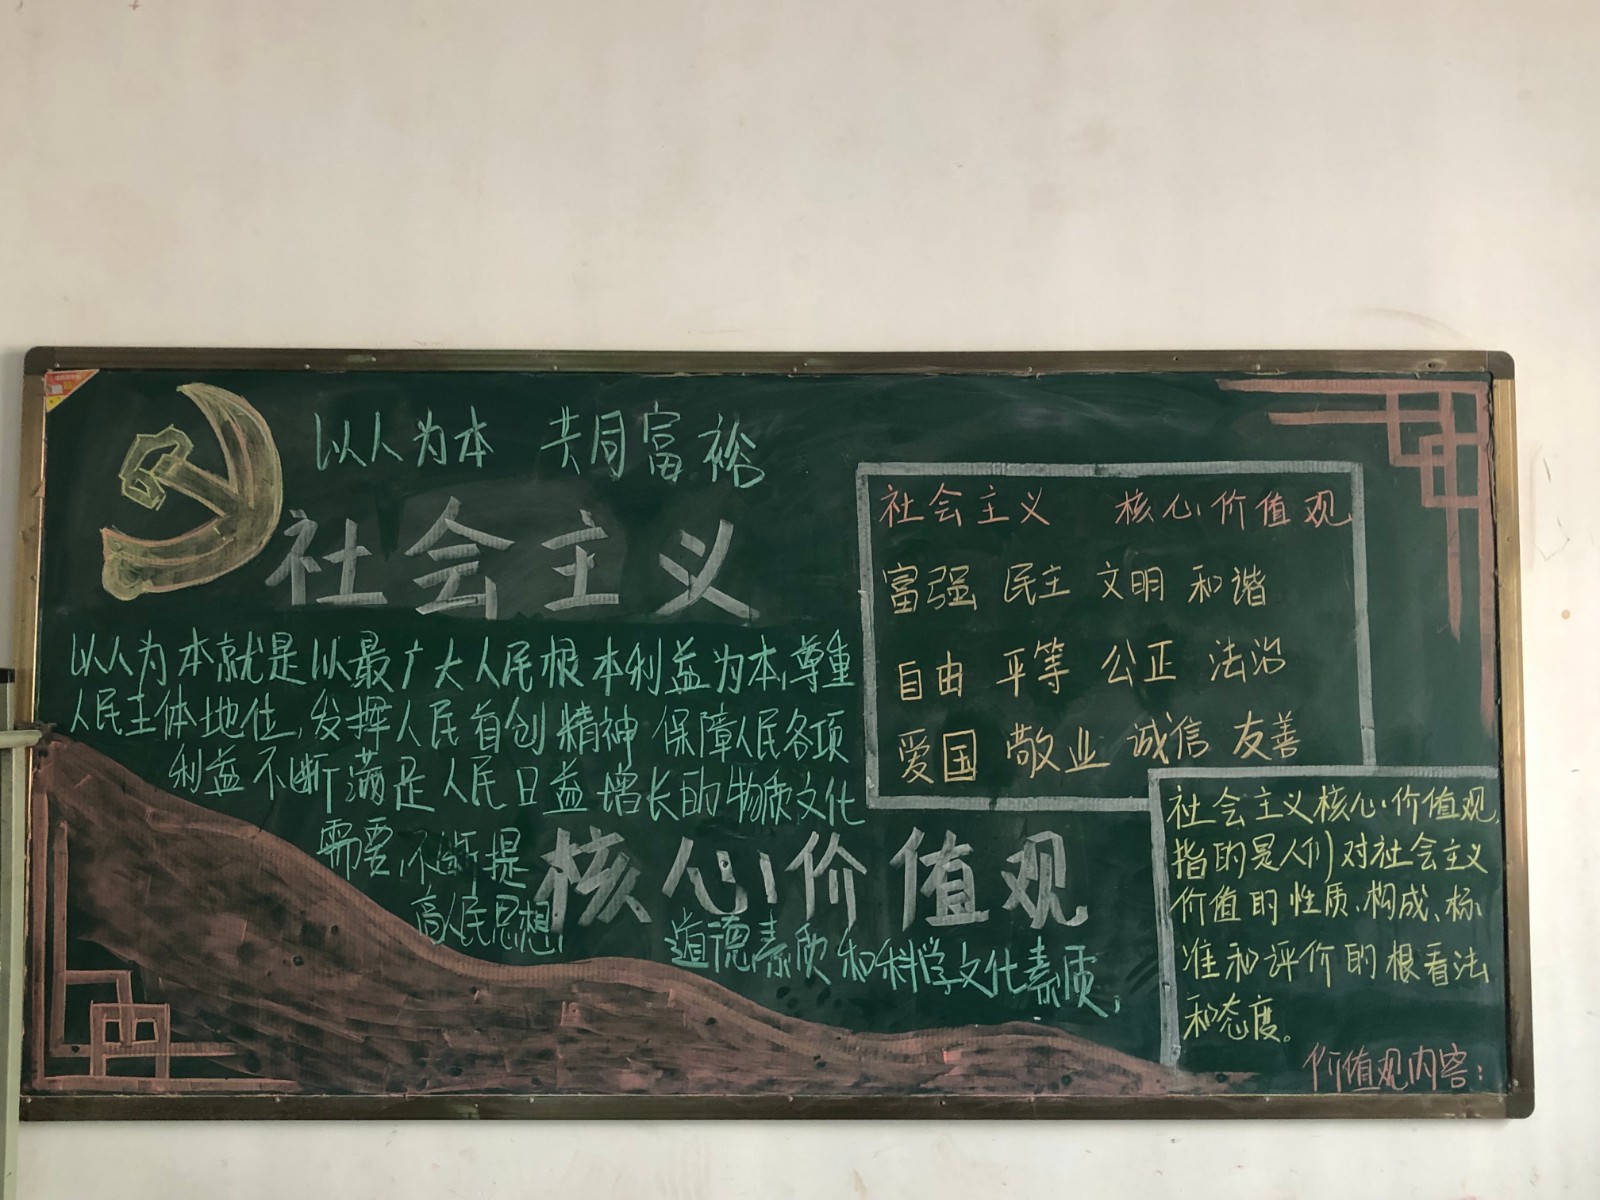 以人为本 共同富裕
社会主义
以人为本就是以最广大人民根本利益为本,尊重
人民主体地位,发挥人民首创精神 保障人民各项
利益不断满足人民日益增长的物质文化
需要,不断提
高人民思想,
核心价值观
道德素质和科学文化素质,
社会主义 核心价值观
富强 民主 文明 和谐
自由 平等 公正 法治
爱国 敬业 诚信 友善
社会主义核心价值观,
指的是人们对社会主义
价值的性质、构成、标
准和评价的根看法
和态度。
价值观内容: